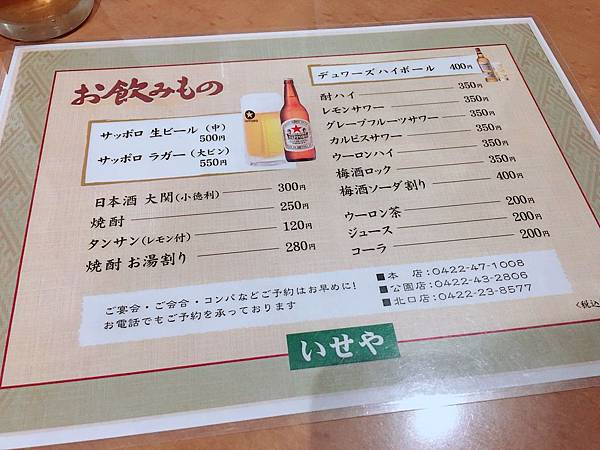 お飲みもの
サッポロ 生ビール (中)
500円
サッポロ ラガー (大ビン)
550円
日本酒 大関(小徳利) 300円
焼酎 250円
タンサン(レモン付) 120円
焼酎お湯割り 280円
デュワーズハイボール 400円
酎ハイ 350円
レモンサワー 350円
グレープフルーツサワー 350円
カルピスサワー 350円
ウーロンハイ 350円
梅酒ロック 350円
梅酒ソーダ割り 400円
ウーロン茶 200円
ジュース 200円
コーラ 200円
ご宴会・ご会合・コンパなどご予約はお早めに!
お電話でもご予約を承っております
■本 店:0422-47-1008
■公園店:0422-43-2806
■北口店:0422-23-8577
<税込
いせや